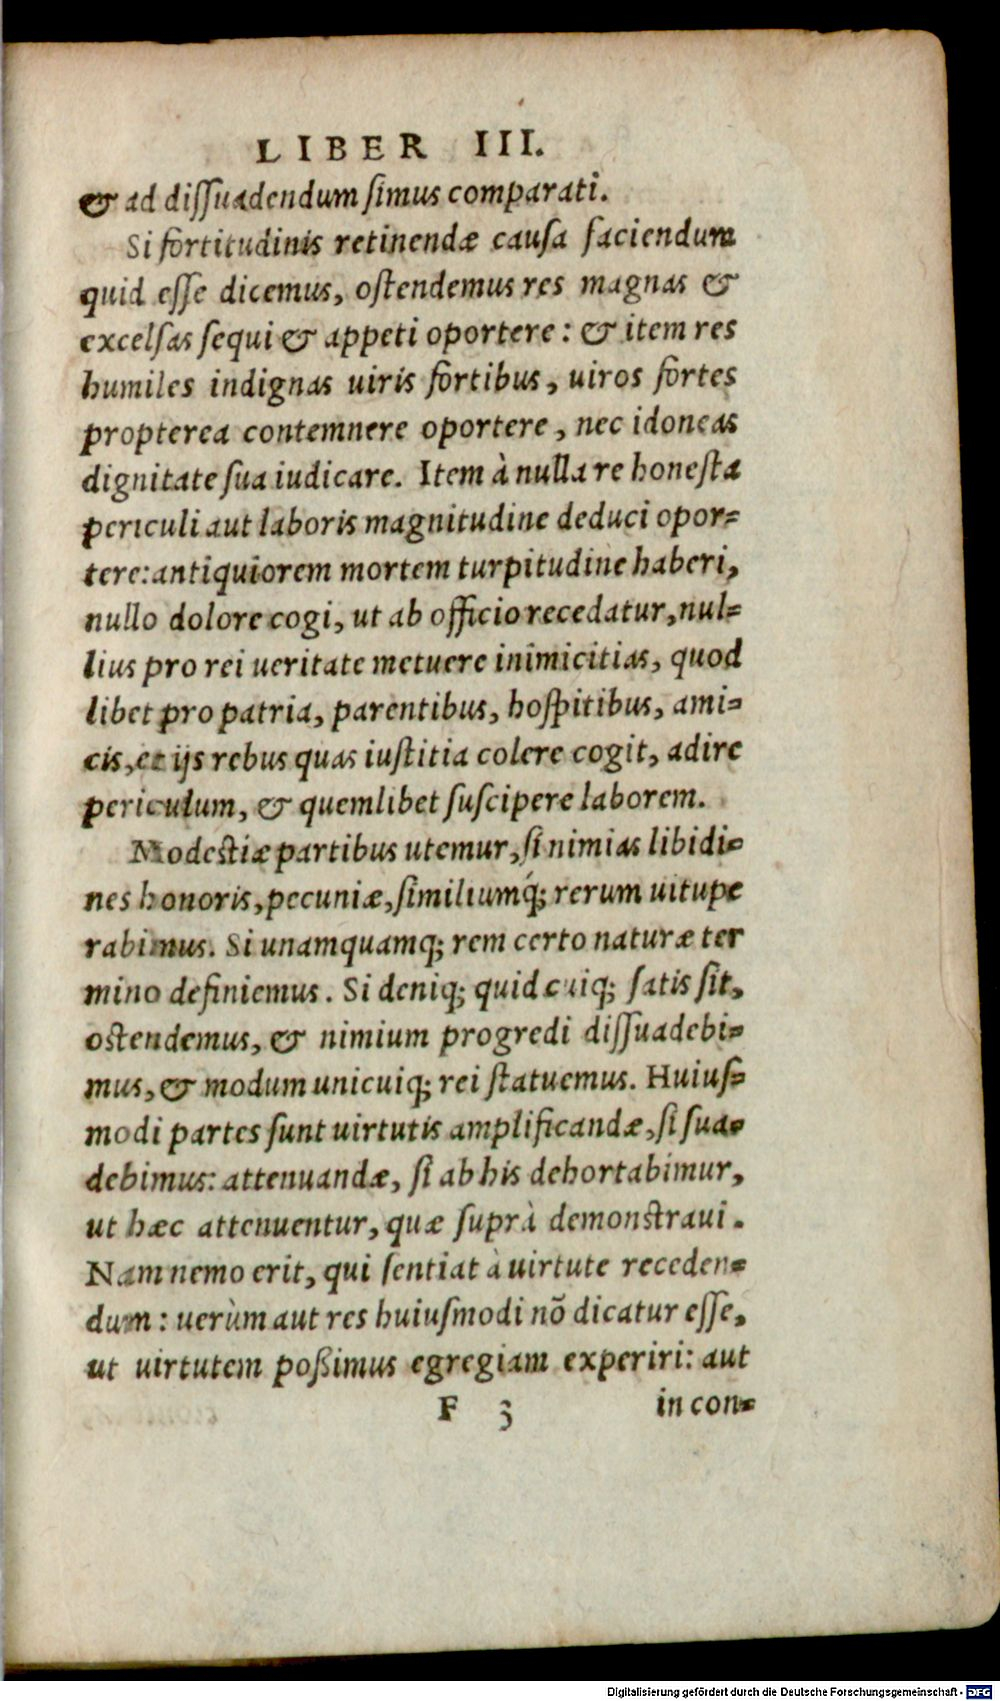 LIBER III.
& ad dissuadendum simus comparati.
Si fortitudinis retinendæ causa faciendum
quid esse dicemus, ostendemus res magnas &
excelsas sequi & appeti oportere: & item res
humiles indignas uiris fortibus, uiros fortes
propterea contemnere oportere, nec idoneas
dignitate sua iudicare. Item à nulla re honesta
periculi aut laboris magnitudine deduci opor-
tere: antiquiorem mortem turpitudine haberi,
nullo dolore cogi, ut ab officio recedatur, nul-
lius pro rei ueritate metuere inimicitias, quod
libet pro patria, parentibus, hospitibus, ami-
cis, et ijs rebus quas iustitia colere cogit, adire
periculum, & quemlibet suscipere laborem.
Modestiæ partibus utemur, si nimias libidi-
nes honoris, pecuniæ, similiumq́; rerum uitupe
rabimus. Si unamquamq; rem certo naturæ ter
mino definiemus. Si deniq; quid cuiq; satis sit,
ostendemus, & nimium progredi dissuadebi-
mus, & modum unicuiq; rei statuemus. Huius-
modi partes sunt uirtutis amplificandæ, si sua-
debimus: attenuandæ, si ab his dehortabimur,
ut hæc attenuentur, quæ suprà demonstraui.
Nam nemo erit, qui sentiat à uirtute receden-
dum: uerùm aut res huiusmodi nõ dicatur esse,
ut uirtutem poßimus egregiam experiri: aut
F 3 in con-
Digitalisierung gefördert durch die Deutsche Forschungsgemeinschaft - DFG